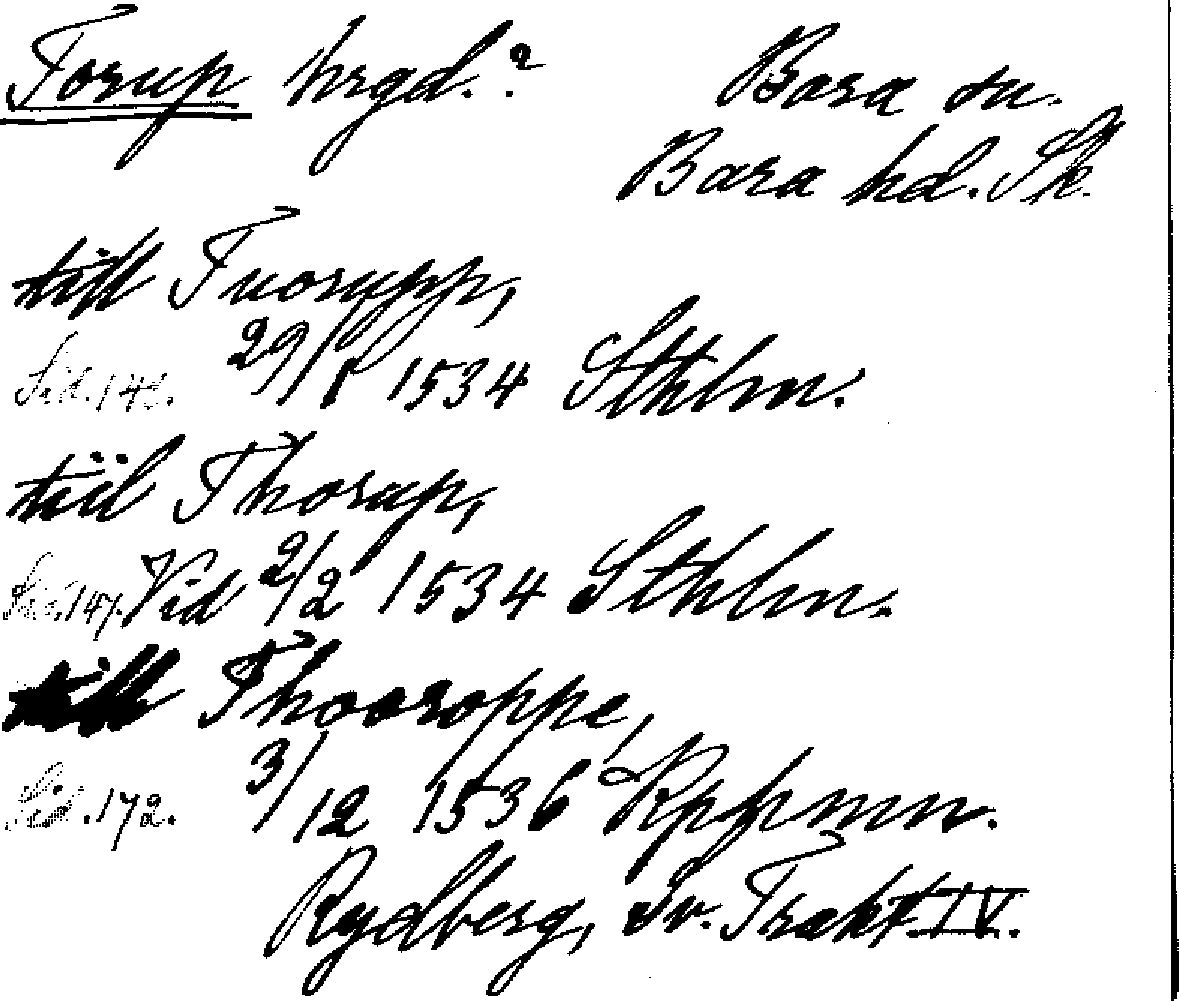 Torup hrgd.?
Bara sn.
Bara hd. Sk.
till Tuorupp,
Sid. 142. 29/1 1534 Sthlm.
tiil Thorup,
Sid. 147. Vid 2/2 1534 Sthlm.
till Thooroppe,
Sid. 172. 3/12 1536 Kphmn.
Rydberg, Sv. Trakt. IV.